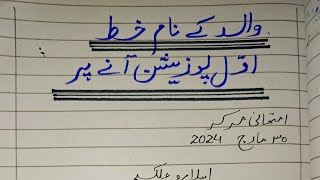 والد کے نام خط
اوّل پوزیشن آنے پر
امتحانی مرکز
۳۰ مارچ 2024
اسلام و علیکم